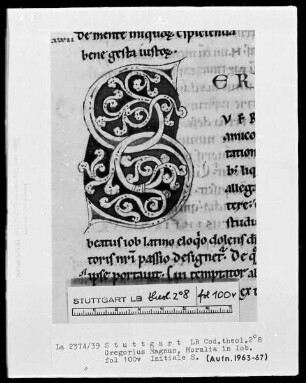 de mente iniquoꝝ excipienda
bene gesta iustoꝝ.
E R
V E R
amico
tation
bꝫ liq
allega
tere:
studiu
beatus iob latino eloqo dolens di
toris nr̄i passio designet̄. De q
ipse portauit. Sui temptator al
STUTTGART LB theol 2°8 fol 100v
La 2374/39 Stuttgart LB Cod.theol.2°8
Gregorius Magnus, Moralia in Iob.
fol 100v Initiale S. (Aufn.1963-67)